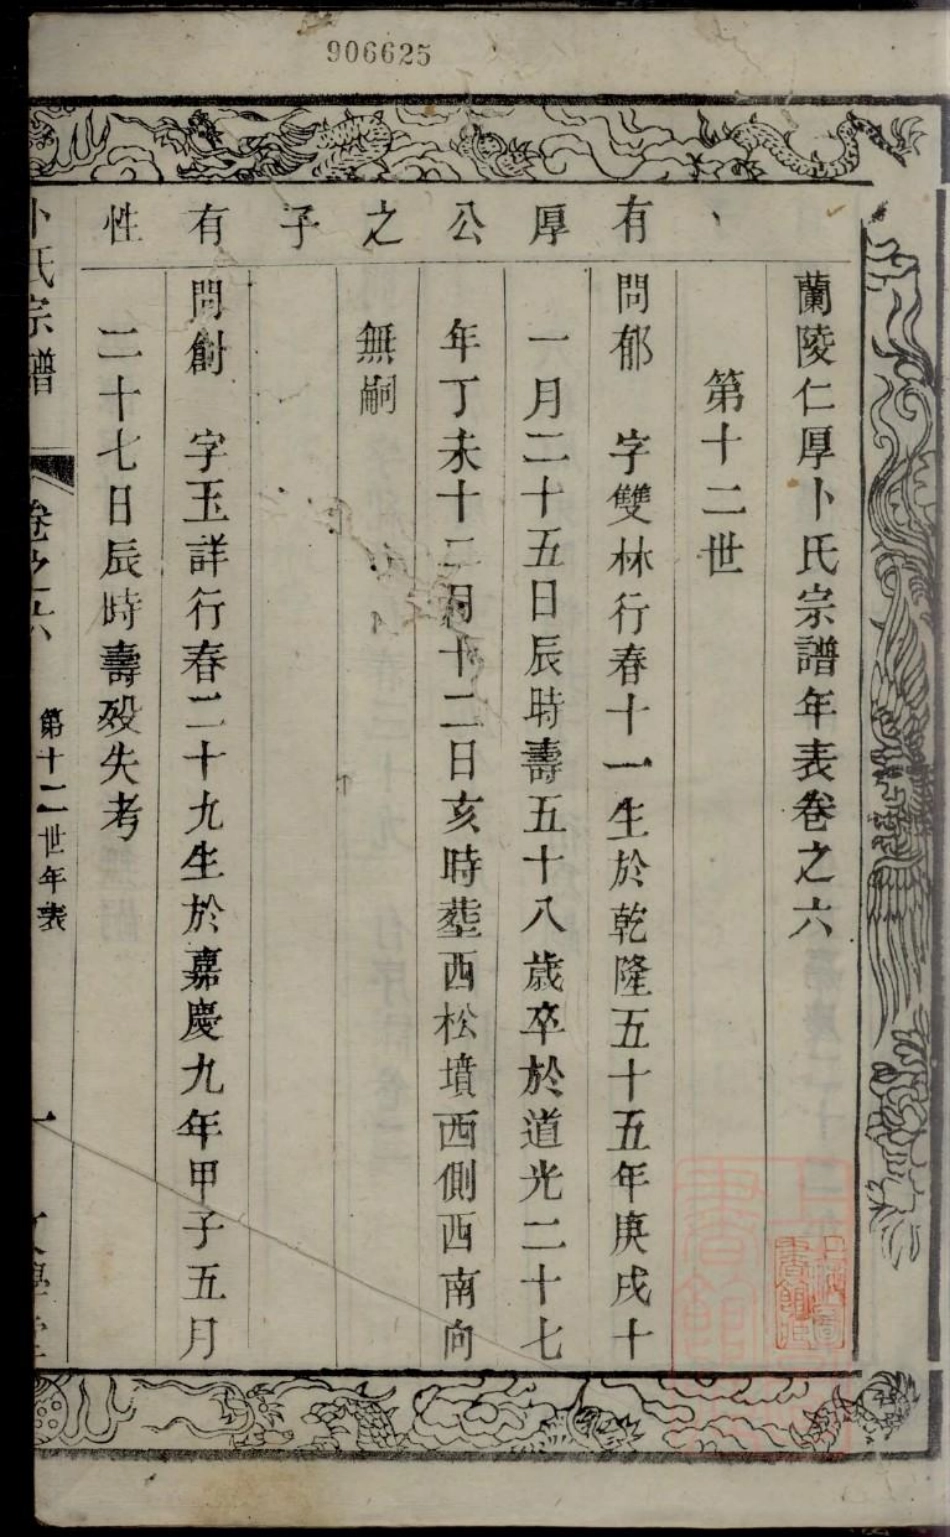 906625
蘭陵仁厚卜氏宗譜年表卷之六
第十二世
有
問郁 字雙林行春十一生於乾隆五十五年庚戌十
厚
一月二十五日辰時壽五十八歲卒於道光二十七
公
年丁未十二月十二日亥時塟西松墳西側西南向
之
無嗣
子
有
問創 字玉詳行春二十九生於嘉慶九年甲子五月
性
二十七日辰時壽歿失考
卜氏宗譜
卷之六
第十二世年表
一